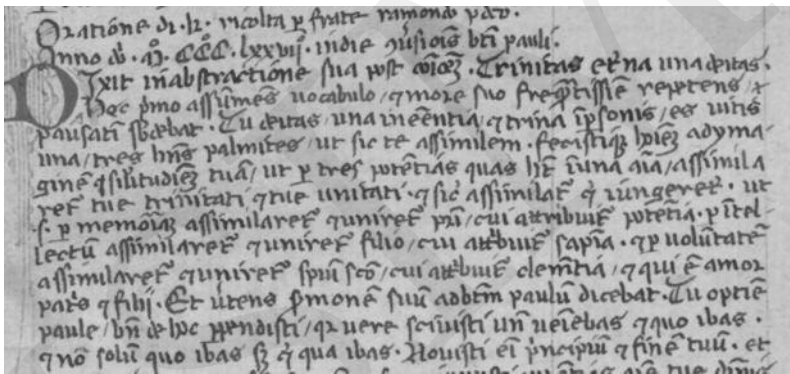 Oratiõne di .k. ricolta p frate ramondo pdco.
Anno dñi .Mº. CCC. lxxviijº. indie ɔ̃uſiois btĩ pauli.
Dixit inabstractione sua post cõicõez. Trinitas et̃na una deitas.
Hoc p̃mo assũmes uocabulo, ⁊more suo freq̃tissĩe repetens, ⁊
pausatĩ sbdebat. Tu deitas, una ineẽntia, ⁊trina ĩpsonis, es uitis
una, tres hñs palmites, ut sic te assimilem. fecistiq; hoĩez adyma
ginẽ ⁊silitudiẽz tuã, ut p tres potẽtias quas hẽt ĩuna aĩa, assimila
ret̃ tue trinitati ⁊tue unitati. ⁊sic̃ assimilat̃ q̃ iũngeret̃. ut
.s. p memoriaz assimilaret̃ ⁊uniret̃ pri, cui attribuit̃ potẽtia. p ĩtel
lectũ assimilaret̃ ⁊uniret̃ filio, cui att̃buit̃ sapĩa. ⁊p uolũtatẽ
assimilaret̃ ⁊uniret̃ spũi scõ, cui att̃buit̃ clemẽtia, ⁊qui ẽ amor
pat̃s ⁊filij. Et ũtens s̃monẽ suũ adbtm̃ paulũ dicebat. Tu optiẽ
paule, bñ de hoc ppendisti, qr uere sciuisti uñ ueĩebas ⁊quo ibas.
⁊nõ solũ quo ibas sz ⁊ qua ibas. Nouisti eĩ p̃ncipiũ ⁊finẽ tuũ. et